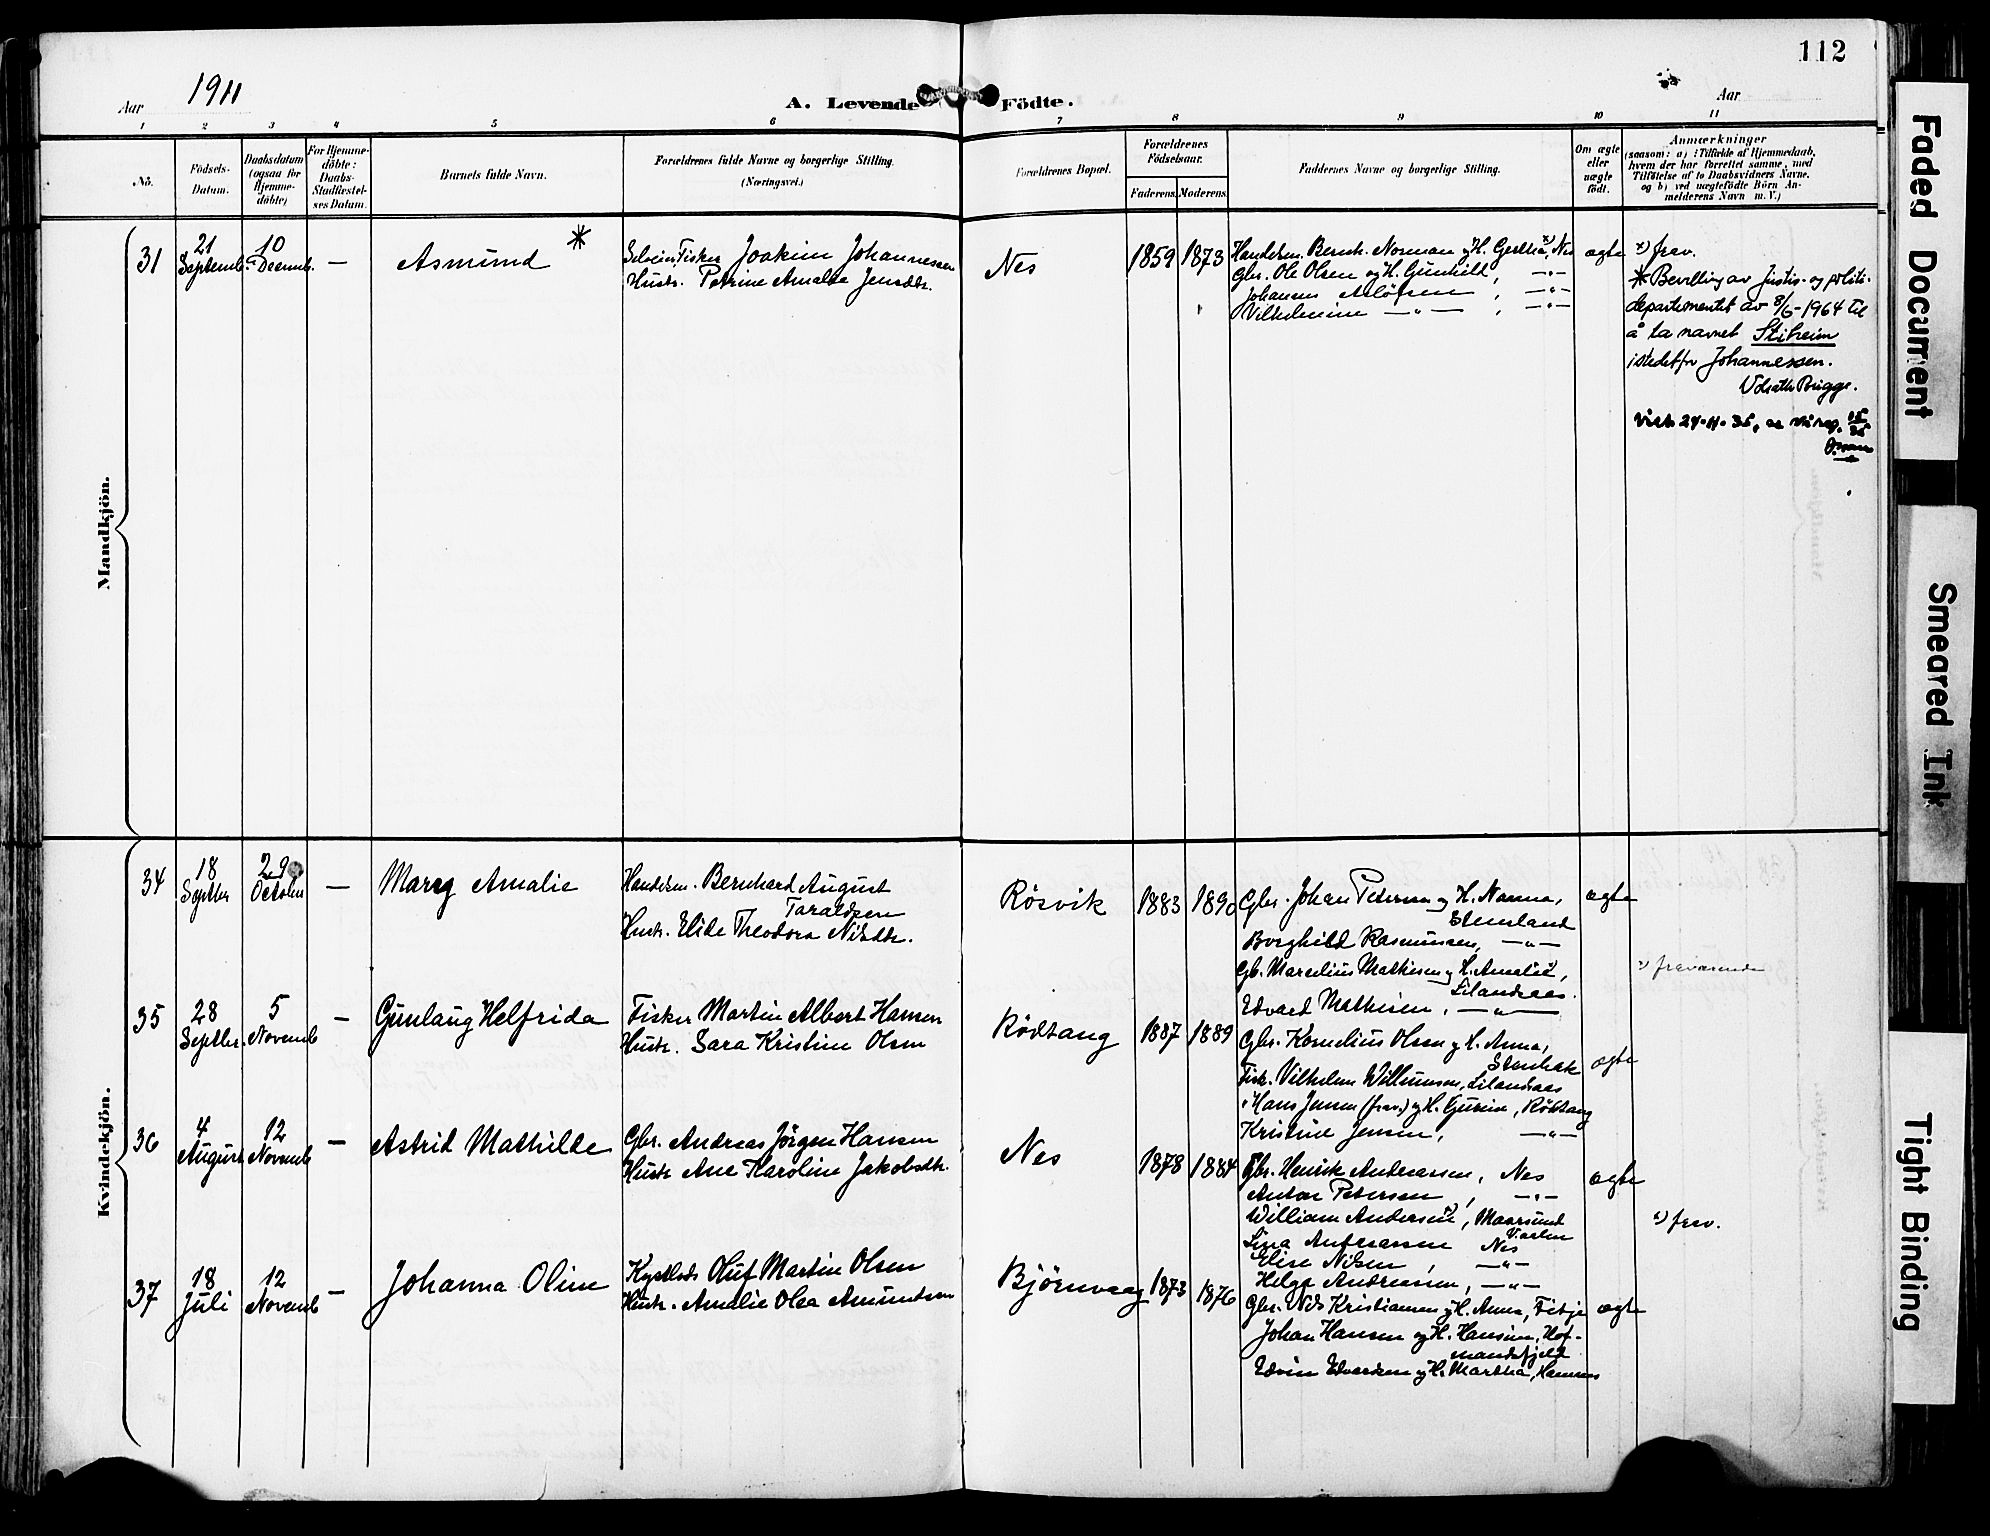 112
Aar 1911
A. Levende Födte.
Aar
1 2 3 4 5 6 7 8 9 10 11
No.
Födsels-Datum.
Daabsdatum (ogsaa for Hjemme-döbte)
For Hjemme-döbte: Daabs-Stadfæstel-ses Datum.
Barnets fulde Navn.
Forældrenes fulde Navne og borgerlige Stilling.
(Næringsvei.)
Forældrenes Bopæl.
Forældrenes Födselsaar.
Faderens. Moderens.
Faddernes Navne og borgerlige Stilling.
Om ægte eller uægte födt.
Anmærkninger
(saasom: a) i Tilfælde af Hjemmedaab,
hvem der har forrettet samme, med
Tilföielse af to Daabsvidners Navne,
og b) ved uægtefödte Börn An-
melderens Navn m. V.)
Mandkjön.
31
21 Septemb.
10 Decemb.
—
Asmund *
Selveier, Fisker Joakim Johannessen
Hustr. Petrine Amalie Jensdtr.
Nes
1859 1873
Handelsm. Bernh. Norman og H. Gertha x), Nes
Gbr. Ole Olsen og H. Gunhild, —"—
Johannes Asløfsen, —"—
Vilhelmine —"—, —"—
ægte
x) frav.
* Bevilling av Justis- og politi-
departementet av 8/6-1964 til
å ta navnet Stiheim
istedetfor Johannessen.
Brigge.
Kvindekjön.
34
18 Septbr
29 Octobr
—
Mary Amalie
Handelsm. Bernhard August
Taraldsen
Hustr. Elide Theodora Nilsdtr.
Røsvik
1883 1890
Gbr. Johan Petersen og H. Nanna,
Stenland
Borghild Rasmussen, —"—
Gb. Marselius Mathisen og H. Amalie x),
Lilandsaas.
Edvard Mathisen, —"—
ægte
x) fraværende
35
28 Septbr.
5 Novemb
—
Gunlaug Helfrida
Fisker Martin Albert Hansen
Hustr. Sara Kristine Olsen
Rödtang
1887 1889
Gbr. Kornelius Olsen og H. Anna,
Stenbak
Fisk. Vilhelm Willumsen, Lilandsaas
" Hans Jensen (frav.) og H. Gurine, Rödtang
Kristine Jensen, —"—
ægte
36
4 August
12 Novemb
—
Astrid Mathilde
Gbr. Andreas Jörgen Hansen
Hustr Ane Karoline Jakobsdtr.
Nes
1878 1884
Gbr. Henrik Andreassen, Nes
Anton Petersen, —"—
William Andersen x), Maarsund
Lina Andreassen Nes
Elise Nilsen, —"—
Helga Andreassen, —"—
ægte
x) frav.
37
18 Juli
12 Novemb
—
Johanna Oline
Kystlods Oluf Martin Olsen
Hustr. Amalie Olea Amundsen
Bjørnvaag
1873 1876
Gbr. Nils Kristiansen og H. Anna, Fitje
Johan Hansen og H. Hansine, Hof-
mandsfjeld
Edvin Edvardsen og H. Martha, Hamnes
ægte
Faded Document
Smeared Ink
Tight Binding